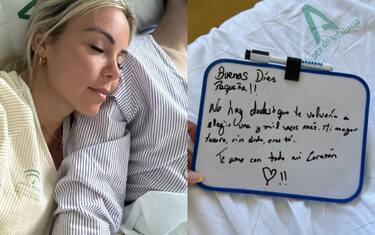 Buenos Días
Pequeña!!
No hay dudas que te volvería a
elegir una y mil veces más. Mi mayor
tesoro, sin duda, eres tú.
Te amo con todo mi Corazón
♡!!